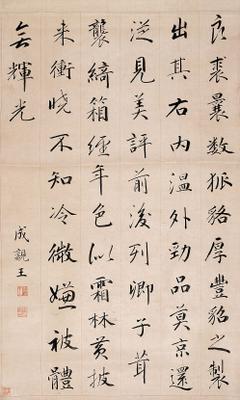 良裘曩数狐貉厚豐貂之製
出其右内温外勁品莫京還
從見美評前後列卿子茸
襲綺箱經年色似霜林黄披
来衝曉不知冷微嫌被體
無輝光
成親王